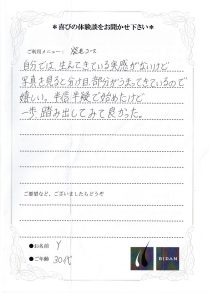 ＊喜びの体験談をお聞かせ下さい＊
ご利用メニュー： 発毛コース
自分では 生えてきている実感がないけど
写真を見ると分け目部分がうまってきているので
嬉しい。半信半疑で始めたけど
一歩踏み出してみて良かった。
ご要望など、ございましたらどうぞ
●お名前 Y
●ご年齢 30代
BIDAN